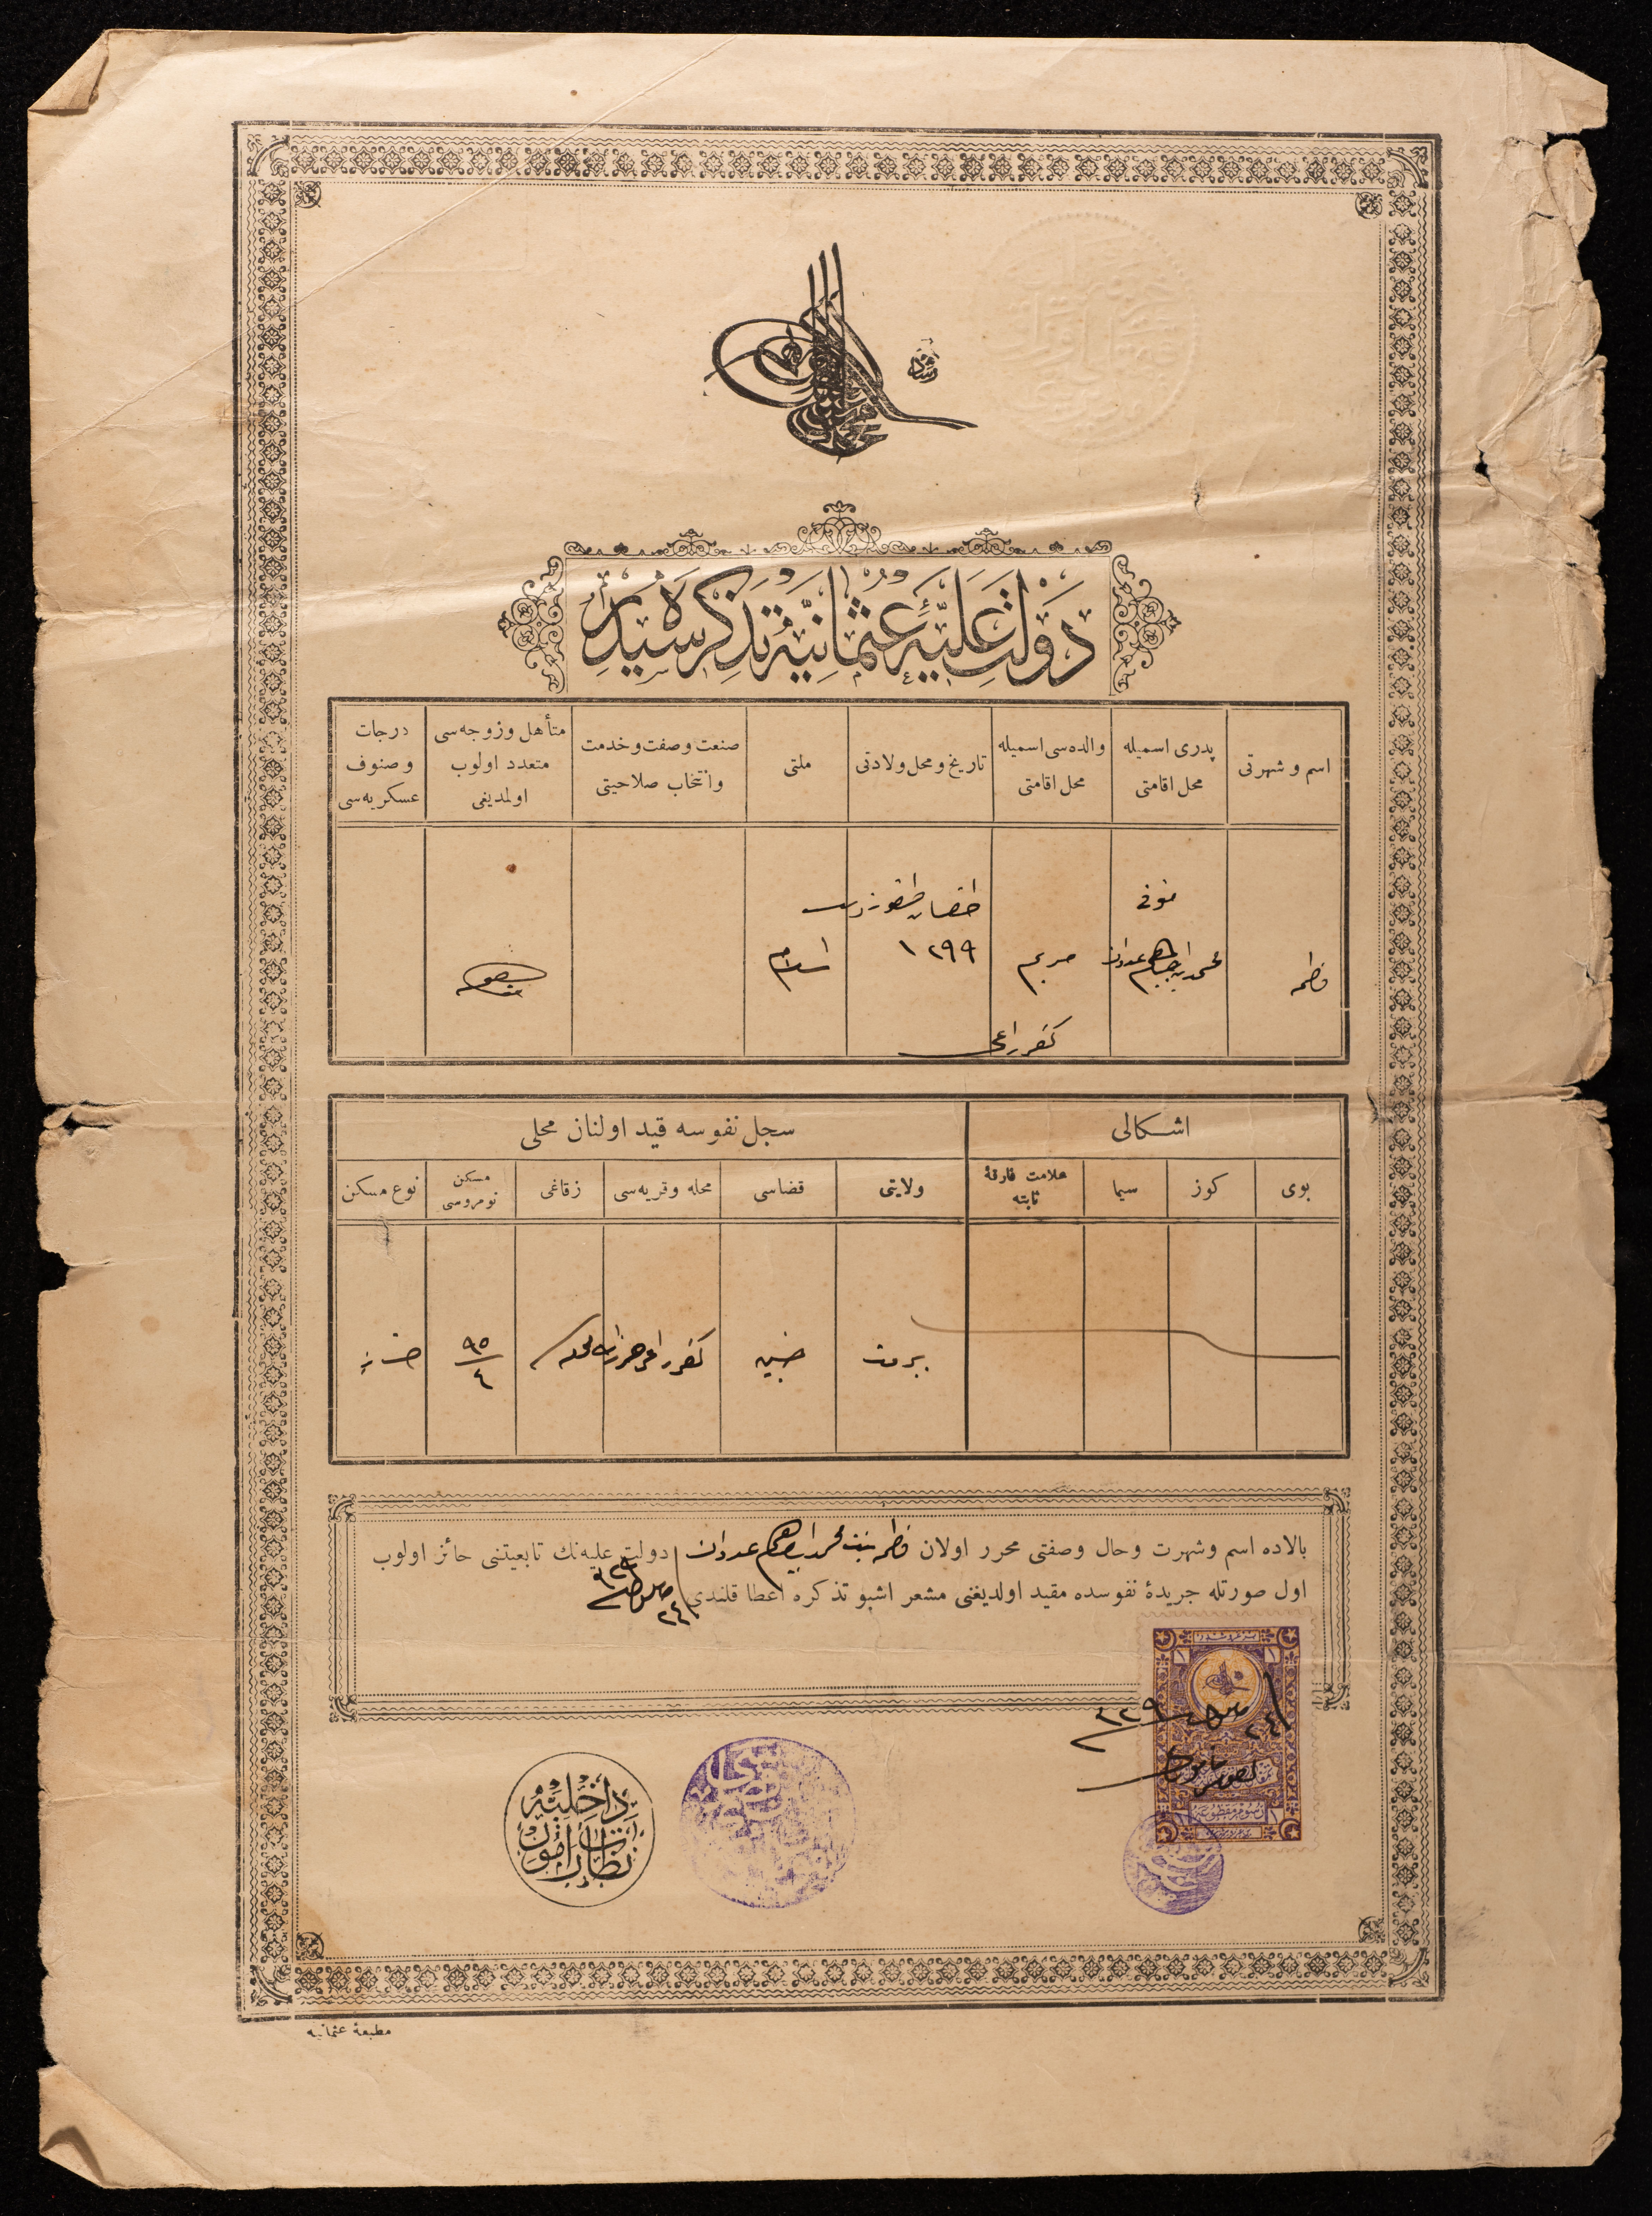 رشاد
دولت عليّهٔ عثمانيّه تذكره سيدر
اسم و شهرتى
پدرى اسميله محل اقامتى
والده سى اسميله محل اقامتى
تاريخ و محل ولادتى
ملتى
صنعت وصفت وخدمت وانتخاب صلاحيتى
متأهل وزوجه سى متعدد اولوب اولمديغى
درجات وصنوف عسكريه سى
فاطمه
متوفى
محمد ابراهيم عدوان
مريم
١٢٩٩
اسلام
كفرراعى
اشكالى
سجل نفوسه قيد اولنان محلى
بوى
كوز
سيما
علامت فارقهٔ ثابته
ولايتى
قضاسى
محله وقريه سى
زقاغى
مسكن نومروسى
نوع مسكن
بيروت
جنين
كفرراعى
محله
٩٥
٤
خانه
بالاده اسم وشهرت وحال وصفتى محرر اولان فاطمه بنت محمد ابراهيم عدوان دولت عليه نك تابعيتنى حائز اولوب
اول صورتله جريدهٔ نفوسده مقيد اولديغنى مشعر اشبو تذكره اعطا قلندى
٣٢٩
داخليه
نظارت
امور
مطبعهٔ عثمانيه